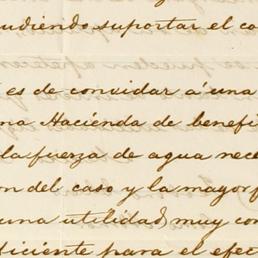 udiendo suportar el co
es de convidar á una
na Hacienda de benefi
la fuerza de agua nece
n del caso y la mayor p
una utilidad muy con
iciente para el efec